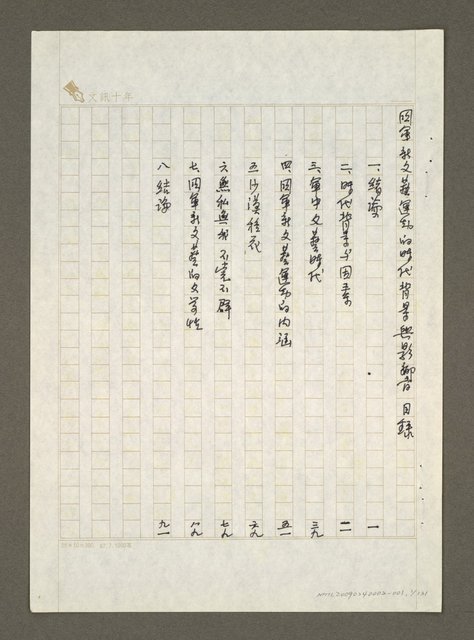 文訊十年
國軍新文藝運動的時代背景與影響 目錄
一、緒論 一
二、時代背景與因素 一一
三、軍中文藝時代 三九
四、國軍新文藝運動的內涵 五一
五、沙漠種花 六九
六、無私無我 不黨不群 七九
七、國軍新文藝的文學性 八九
八、結論 九一